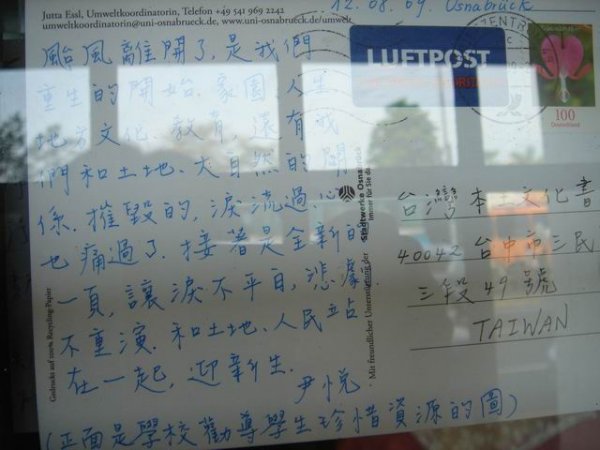 Jutta Essl, Umweltkoordinatorin, Telefon +49 541 969 2242
umweltkoordinatorin@uni-osnabrueck.de, www.uni-osnabrueck.de/umwelt
12.08.09. Osnabrück
颱風離開了,是我們
重生的開始.家園、人
地方文化、教育,還有我
們和土地、大自然的關
係.摧毀的,淚流過、心
也痛過了.接著是全新的
一頁,讓淚不平白,悲劇
不重演.和土地、人民立站
在一起,迎新生.
尹悦
(正面是學校勸導學生珍惜資源的圖)
LUFTPOST
100
Deutschland
Stadtwerke Osnabrück
Immer für Sie da
Mit freundlicher Unterstützung der
Gedruckt auf 100% Recycling-Papier
台灣本土文化書
40042 台中市三民
三段49號
TAIWAN